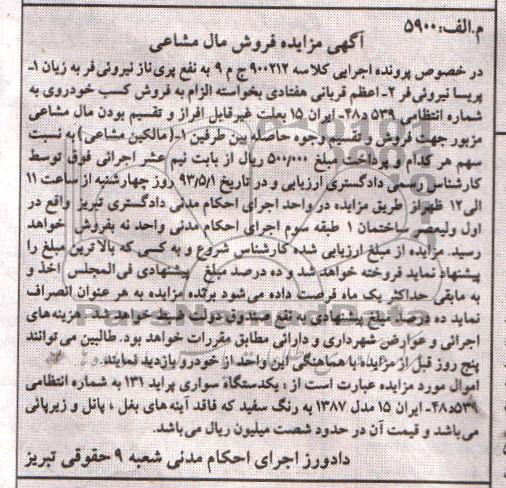 م.الف:۵۹۰۰
آگهی مزایده فروش مال مشاعی
در خصوص پرونده اجرایی کلاسه ۹۰۰۲۱۲ ج م ۹ به نفع پری ناز نیرولی فر به زیان ۱-
پریسا نیرولی فر ۲- اعظم قربانی هفتادی بخواسته الزام به فروش کسب خودروی به
شماره انتظامی ۵۳۹ د۴۸- ایران ۱۵ بعلت غیرقابل افراز و تقسیم بودن مال مشاعی
مزبور جهت فروش و تقسیم وجوه حاصله بین طرفین ۱-(مالکین مشاعی) به نسبت
سهم هر کدام و پرداخت مبلغ ۵۰۰/۰۰۰ ریال از بابت نیم عشر اجرائی فوق توسط
کارشناس رسمی دادگستری ارزیابی و در تاریخ ۹۳/۵/۱ روز چهارشنبه از ساعت ۱۱
الی ۱۲ ظهر از طریق مزایده در واحد اجرای احکام مدنی دادگستری تبریز واقع در
اول ولیعصر ساختمان ۱ طبقه سوم اجرای احکام مدنی واحد نه بفروش خواهد
رسید. مزایده از مبلغ ارزیابی شده کارشناس شروع و به کسی که بالاترین مبلغ را
پیشنهاد نماید فروخته خواهد شد و ده درصد مبلغ پیشنهادی فی المجلس اخذ و
به مابقی حداکثر یک ماه فرصت داده می شود برنده مزایده به هر عنوان انصراف
نماید ده درصد مبلغ پیشنهادی به نفع صندوق دولت ضبط خواهد شد. هزینه های
اجرائی و عوارض شهرداری و دارائی مطابق مقررات خواهد بود. طالبین می توانند
پنج روز قبل از مزایده با هماهنگی این واحد از خودرو بازدید نمایند.
اموال مورد مزایده عبارت است از: یکدستگاه سواری پراید ۱۳۱ به شماره انتظامی
۵۳۹د۴۸- ایران ۱۵ مدل ۱۳۸۷ به رنگ سفید که فاقد آینه های بغل، پانل و زیرپائی
می باشد و قیمت آن در حدود شصت میلیون ریال می باشد.
دادورز اجرای احکام مدنی شعبه ۹ حقوقی تبریز
ParsNamadData